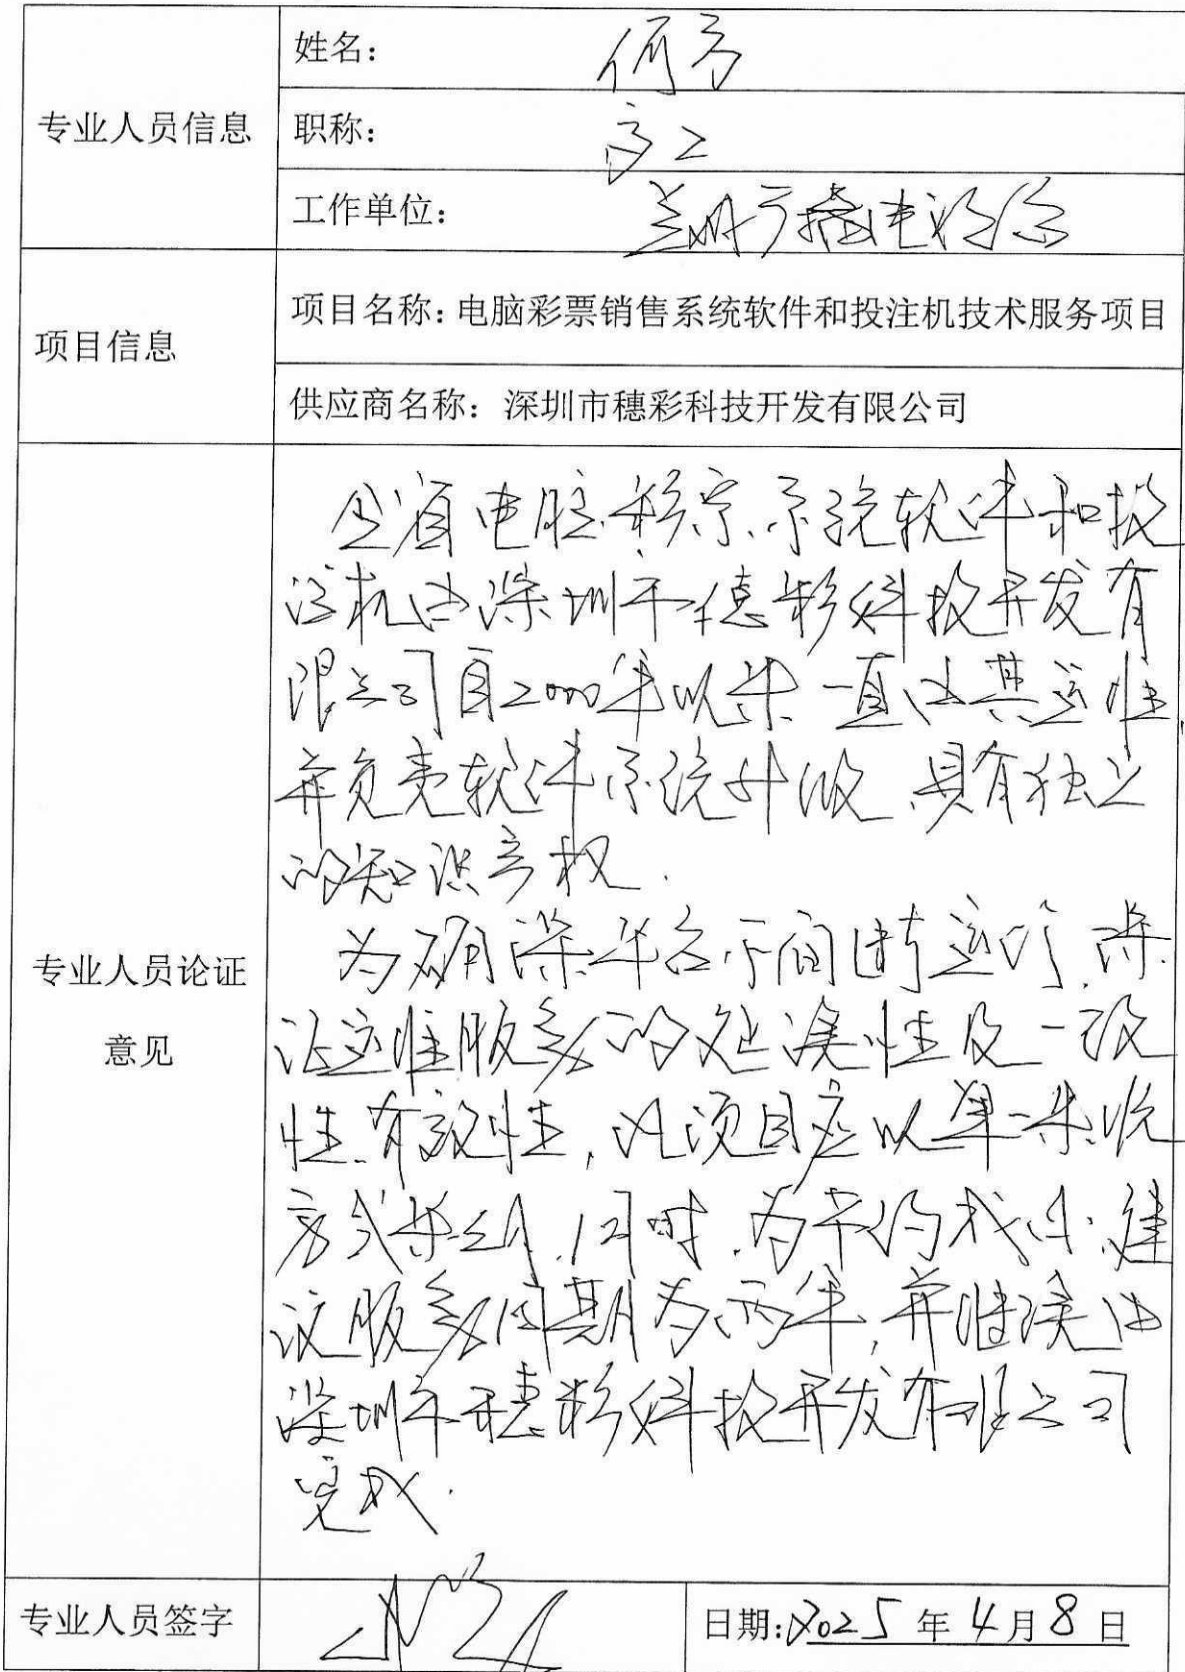 姓名：何方
专业人员信息
职称：高工
工作单位：兰州广播电视台
项目信息
项目名称：电脑彩票销售系统软件和投注机技术服务项目
供应商名称：深圳市穗彩科技开发有限公司
专业人员论证
意见
全省电脑彩票系统软件和投
注机由深圳市穗彩科技开发有
限公司自2000年以来一直由其运维，
并负责软件系统升级，具有独立
的知识产权.
为确保平台不间断运行，保
证运维服务的延续性及一致
性、有效性，此项目应以单一来源
方式采购，同时，为节约成本，建
议服务周期为两年，并继续由
深圳市穗彩科技开发有限公司
完成.
专业人员签字
日期:2025年4月8日